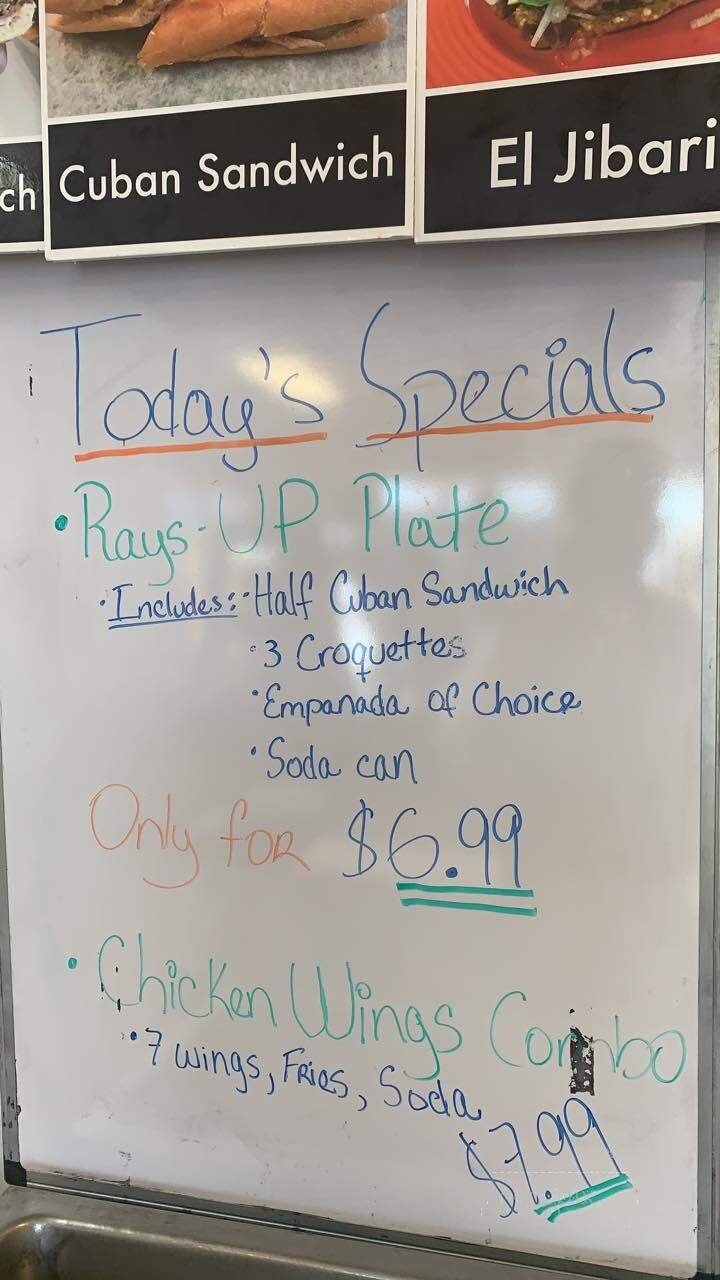 ch
Cuban Sandwich
El Jibari
Today's Specials
• Rays-UP Plate
• Includes: • Half Cuban Sandwich
• 3 Croquettes
• Empanada of Choice
• Soda can
Only for $6.99
• Chicken Wings Combo
• 7 wings, Fries, Soda
$7.99